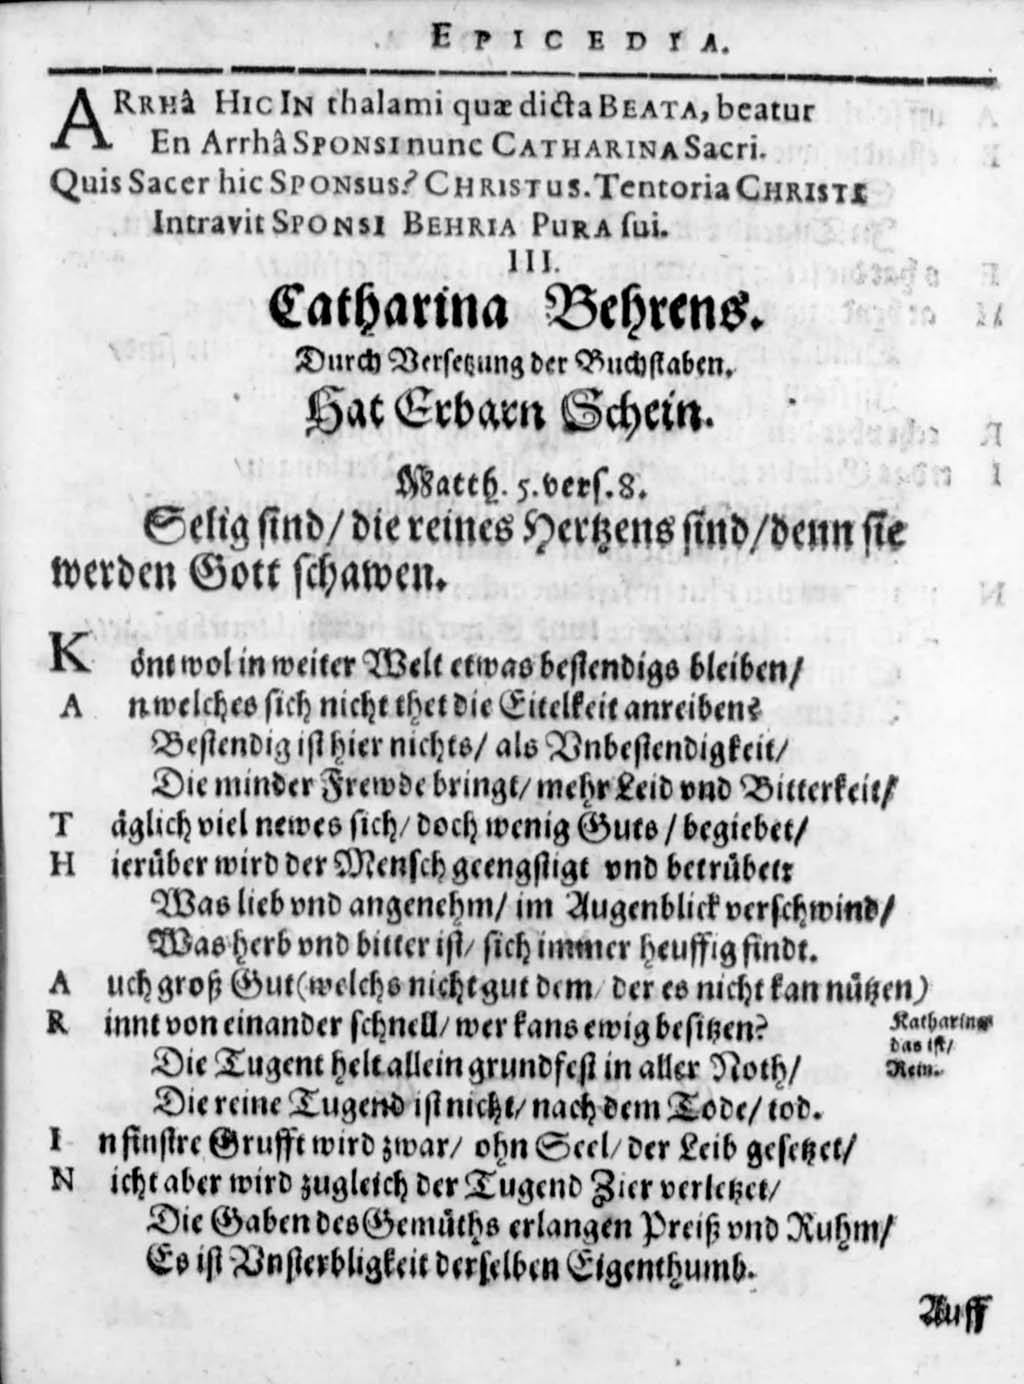 EPICEDIA.
ARRHâ HIC IN thalami quæ dicta BEATA, beatur
En Arrhâ SPONSI nunc CATHARINA Sacri.
Quis Sacer hic SPONsus? CHRISTUS. Tentoria CHRISTI
Intravit SPONSI BEHRIA PURA sui.
III.
Catharina Behrens.
Durch Versetzung der Buchstaben.
Hat Erbarn Schein.
Matth. 5. vers. 8.
Selig sind/ die reines Hertzens sind/ denn sie
werden Gott schawen.
Könt wol in weiter Welt etwas bestendigs bleiben/
An welches sich nicht thet die Eitelkeit anreiben?
Bestendig ist hier nichts/ als Vnbestendigkeit/
Die minder Frewde bringt/ mehr Leid vnd Bitterkeit/
Täglich viel newes sich/ doch wenig Guts/ begiebet/
Hierüber wird der Mensch geengstigt vnd betrübet:
Was lieb vnd angenehm/ im Augenblick verschwind/
Was herb vnd bitter ist/ sich immer heuffig findt.
Auch groß Gut (welchs nicht gut dem/ der es nicht kan nützen)
Rinnt von einander schnell/ wer kans ewig besitzen?
Katharina
das ist/
Rein.
Die Tugent helt allein grundfest in aller Noth/
Die reine Tugend ist nicht/ nach dem Tode/ tod.
In finstre Grufft wird zwar/ ohn Seel/ der Leib gesetzet/
Nicht aber wird zugleich der Tugend Zier verletzet/
Die Gaben des Gemüths erlangen Preiß vnd Ruhm/
Es ist Vnsterbligkeit derselben Eigenthumb.
Auff